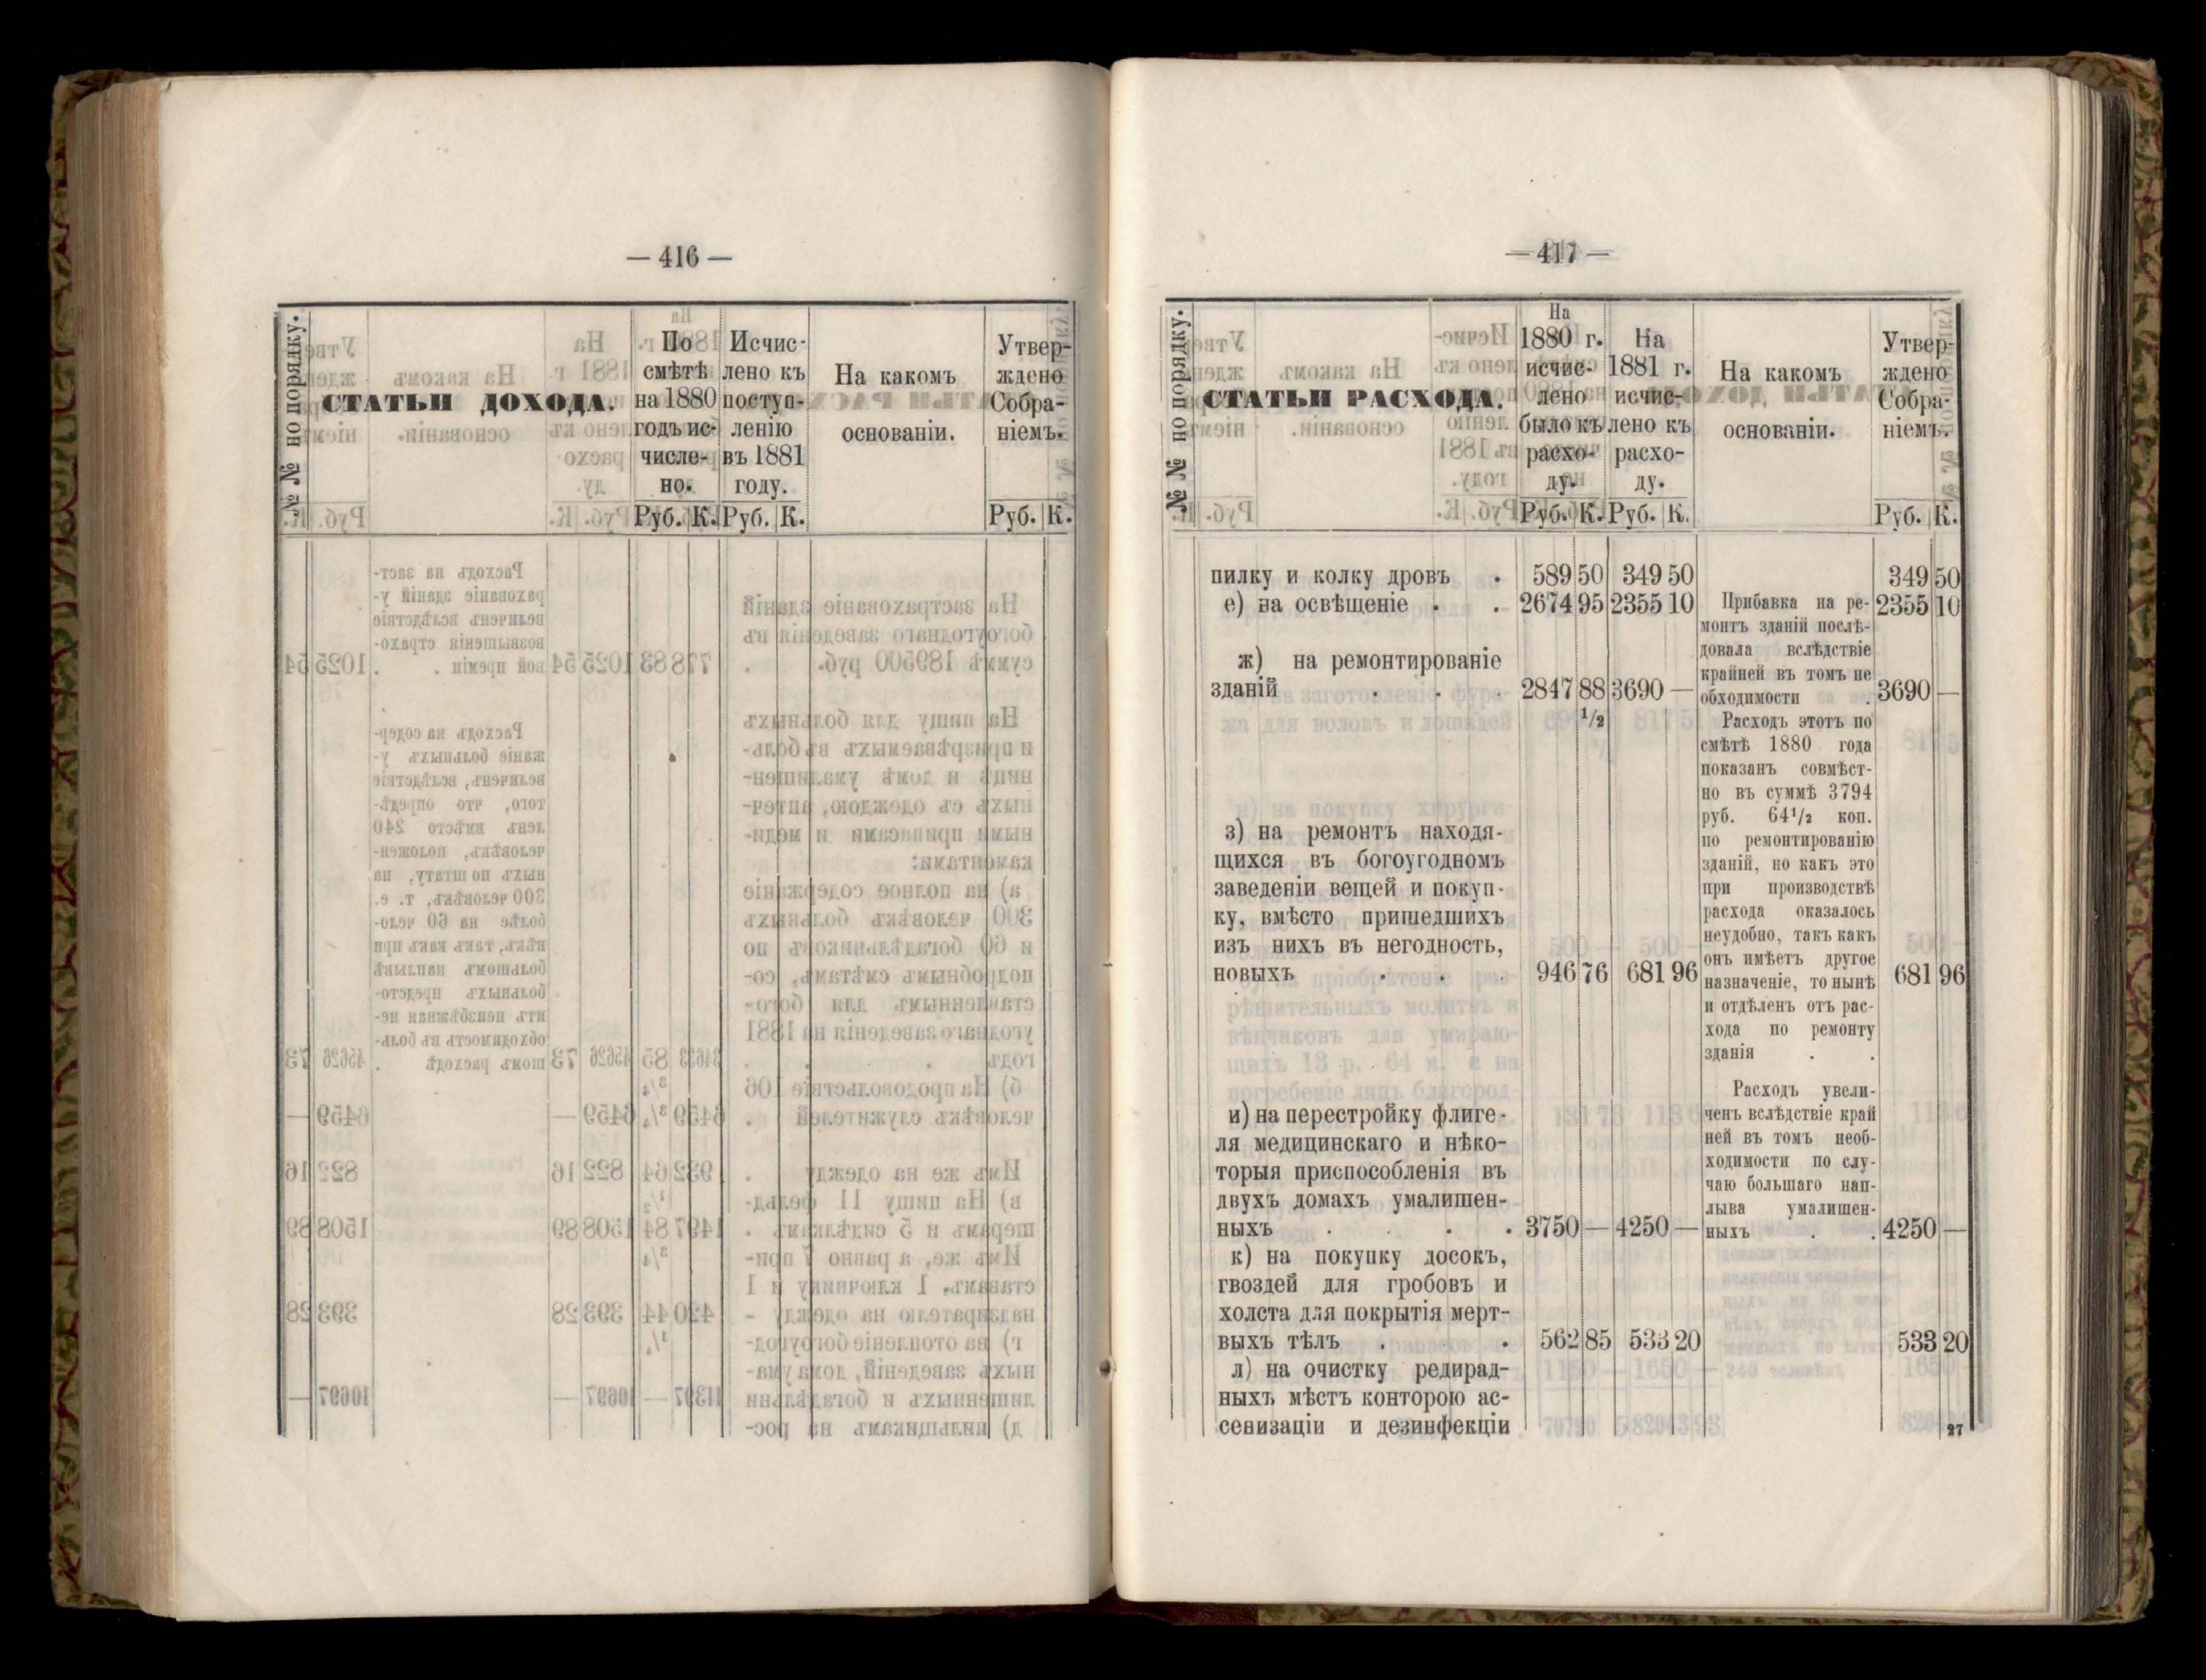 — 416 —
№ № по порядку.
СТАТЬИ ДОХОДА.
По
смѣтѣ
на 1880
годъ ис-
числе-
но.
Руб. К.
Исчис-
лено къ
поступ-
ленію
въ 1881
году.
Руб. К.
На какомъ
основаніи.
Утвер-
ждено
Собра-
ніемъ.
Руб. К.
— 417 —
№ № по порядку.
СТАТЬИ РАСХОДА.
На
1880 г.
исчис-
лено
было къ
расхо-
ду.
Руб. К.
На
1881 г.
исчис-
лено къ
расхо-
ду.
Руб. К.
На какомъ
основаніи.
Утвер-
ждено
Собра-
ніемъ.
Руб. К.
пилку и колку дровъ . 589 50 349 50 349 50
е) на освѣщеніе . . 2674 95 2355 10 2355 10
ж) на ремонтированіе
зданій . . . 2847 88 1/2 3690 — 3690 —
Прибавка на ре-
монтъ зданій послѣ-
довала вслѣдствіе
крайней въ томъ не
обходимости .
з) на ремонтъ находя-
щихся въ богоугодномъ
заведеніи вещей и покуп-
ку, вмѣсто пришедшихъ
изъ нихъ въ негодность,
новыхъ . . . 946 76 681 96 681 96
Расходъ этотъ по
смѣтѣ 1880 года
показанъ совмѣст-
но въ суммѣ 3794
руб. 64 1/2 коп.
по ремонтированію
зданій, но какъ это
при производствѣ
расхода оказалось
неудобно, такъ какъ
онъ имѣетъ другое
назначеніе, то нынѣ
и отдѣленъ отъ рас-
хода по ремонту
зданія . .
и) на перестройку флиге-
ля медицинскаго и нѣко-
торыя приспособленія въ
двухъ домахъ умалишен-
ныхъ . . . . 3750 — 4250 — 4250 —
Расходъ увели-
ченъ вслѣдствіе край
ней въ томъ необ-
ходимости по слу-
чаю большаго нап-
лыва умалишен-
ныхъ . .
к) на покупку досокъ,
гвоздей для гробовъ и
холста для покрытія мерт-
выхъ тѣлъ . . 562 85 533 20 533 20
л) на очистку редирад-
ныхъ мѣстъ конторою ас-
сенизаціи и дезинфекціи
27